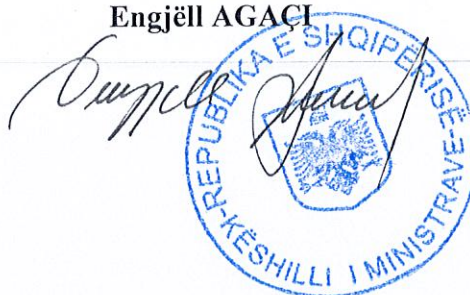 Engjëll AGAÇI
Engjëll Agaçi
REPUBLIKA E SHQIPËRISË
KËSHILLI I MINISTRAVE